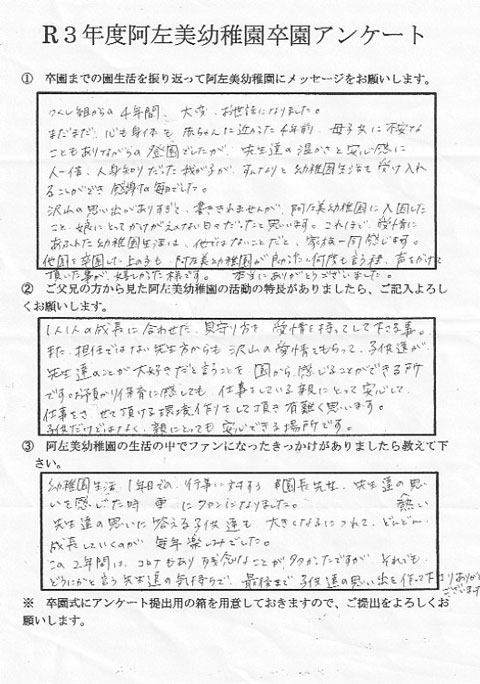 R3年度阿左美幼稚園卒園アンケート
① 卒園までの園生活を振り返って阿左美幼稚園にメッセージをお願いします。
つくし組からの4年間、大変、お世話になりました。
まだまだ、心も身体も赤ちゃんに近かった4年前、母子共に不安な
こともありながらの登園でしたが、先生達の温かさと安心感に
人一倍、人見知りだった我が子が、すんなりと幼稚園生活を受け入れ
ることができ感謝な毎日でした。
沢山の思い出がありすぎて、書ききれませんが、阿左美幼稚園に入園した
こと、娘にとってかけがえない日々だったと思います。これほど、愛情に
あふれた幼稚園生活は、他ではないことだと、家族一同感じます。
他園を卒園した上の子も、阿左美幼稚園が良かったと何度も言う程、声をかけて
頂いた事が、嬉しかった様です。本当にありがとうございました。
② ご父兄の方から見た阿左美幼稚園の活動の特長がありましたら、ご記入よろし
くお願いします。
1人1人の成長に合わせた、見守り方を愛情を持ってして下さる事。
また、担任ではない先生方からも沢山の愛情をもらって、子供達が、
先生達のことが大好きだと言うことを園から感じることができる所
です。お預かり保育に感しても、仕事をしている親にとって安心して、
仕事をさせて頂ける環境作りをして頂き有難く思います。
子供だけではなく、親にとっても安心できる場所です。
③ 阿左美幼稚園の生活の中でファンになったきっかけがありましたら教えて下
さい。
幼稚園生活、1年目での、行事に対する園長先生、先生達の思
いを感じた時更にファンになりました。 熱い
先生達の思いに答える子供達も大きくなるにつれて、どんどん
成長していくのが毎年楽しみでした。
この2年間は、コロナもあり残念なことが多かったですが、それでも
どうにかと言う先生達の気持ちで、最後まで子供達の思い出を作って下さりありがとう
ございます
※ 卒園式にアンケート提出用の箱を用意しておきますので、ご提出をよろしくお
願いします。